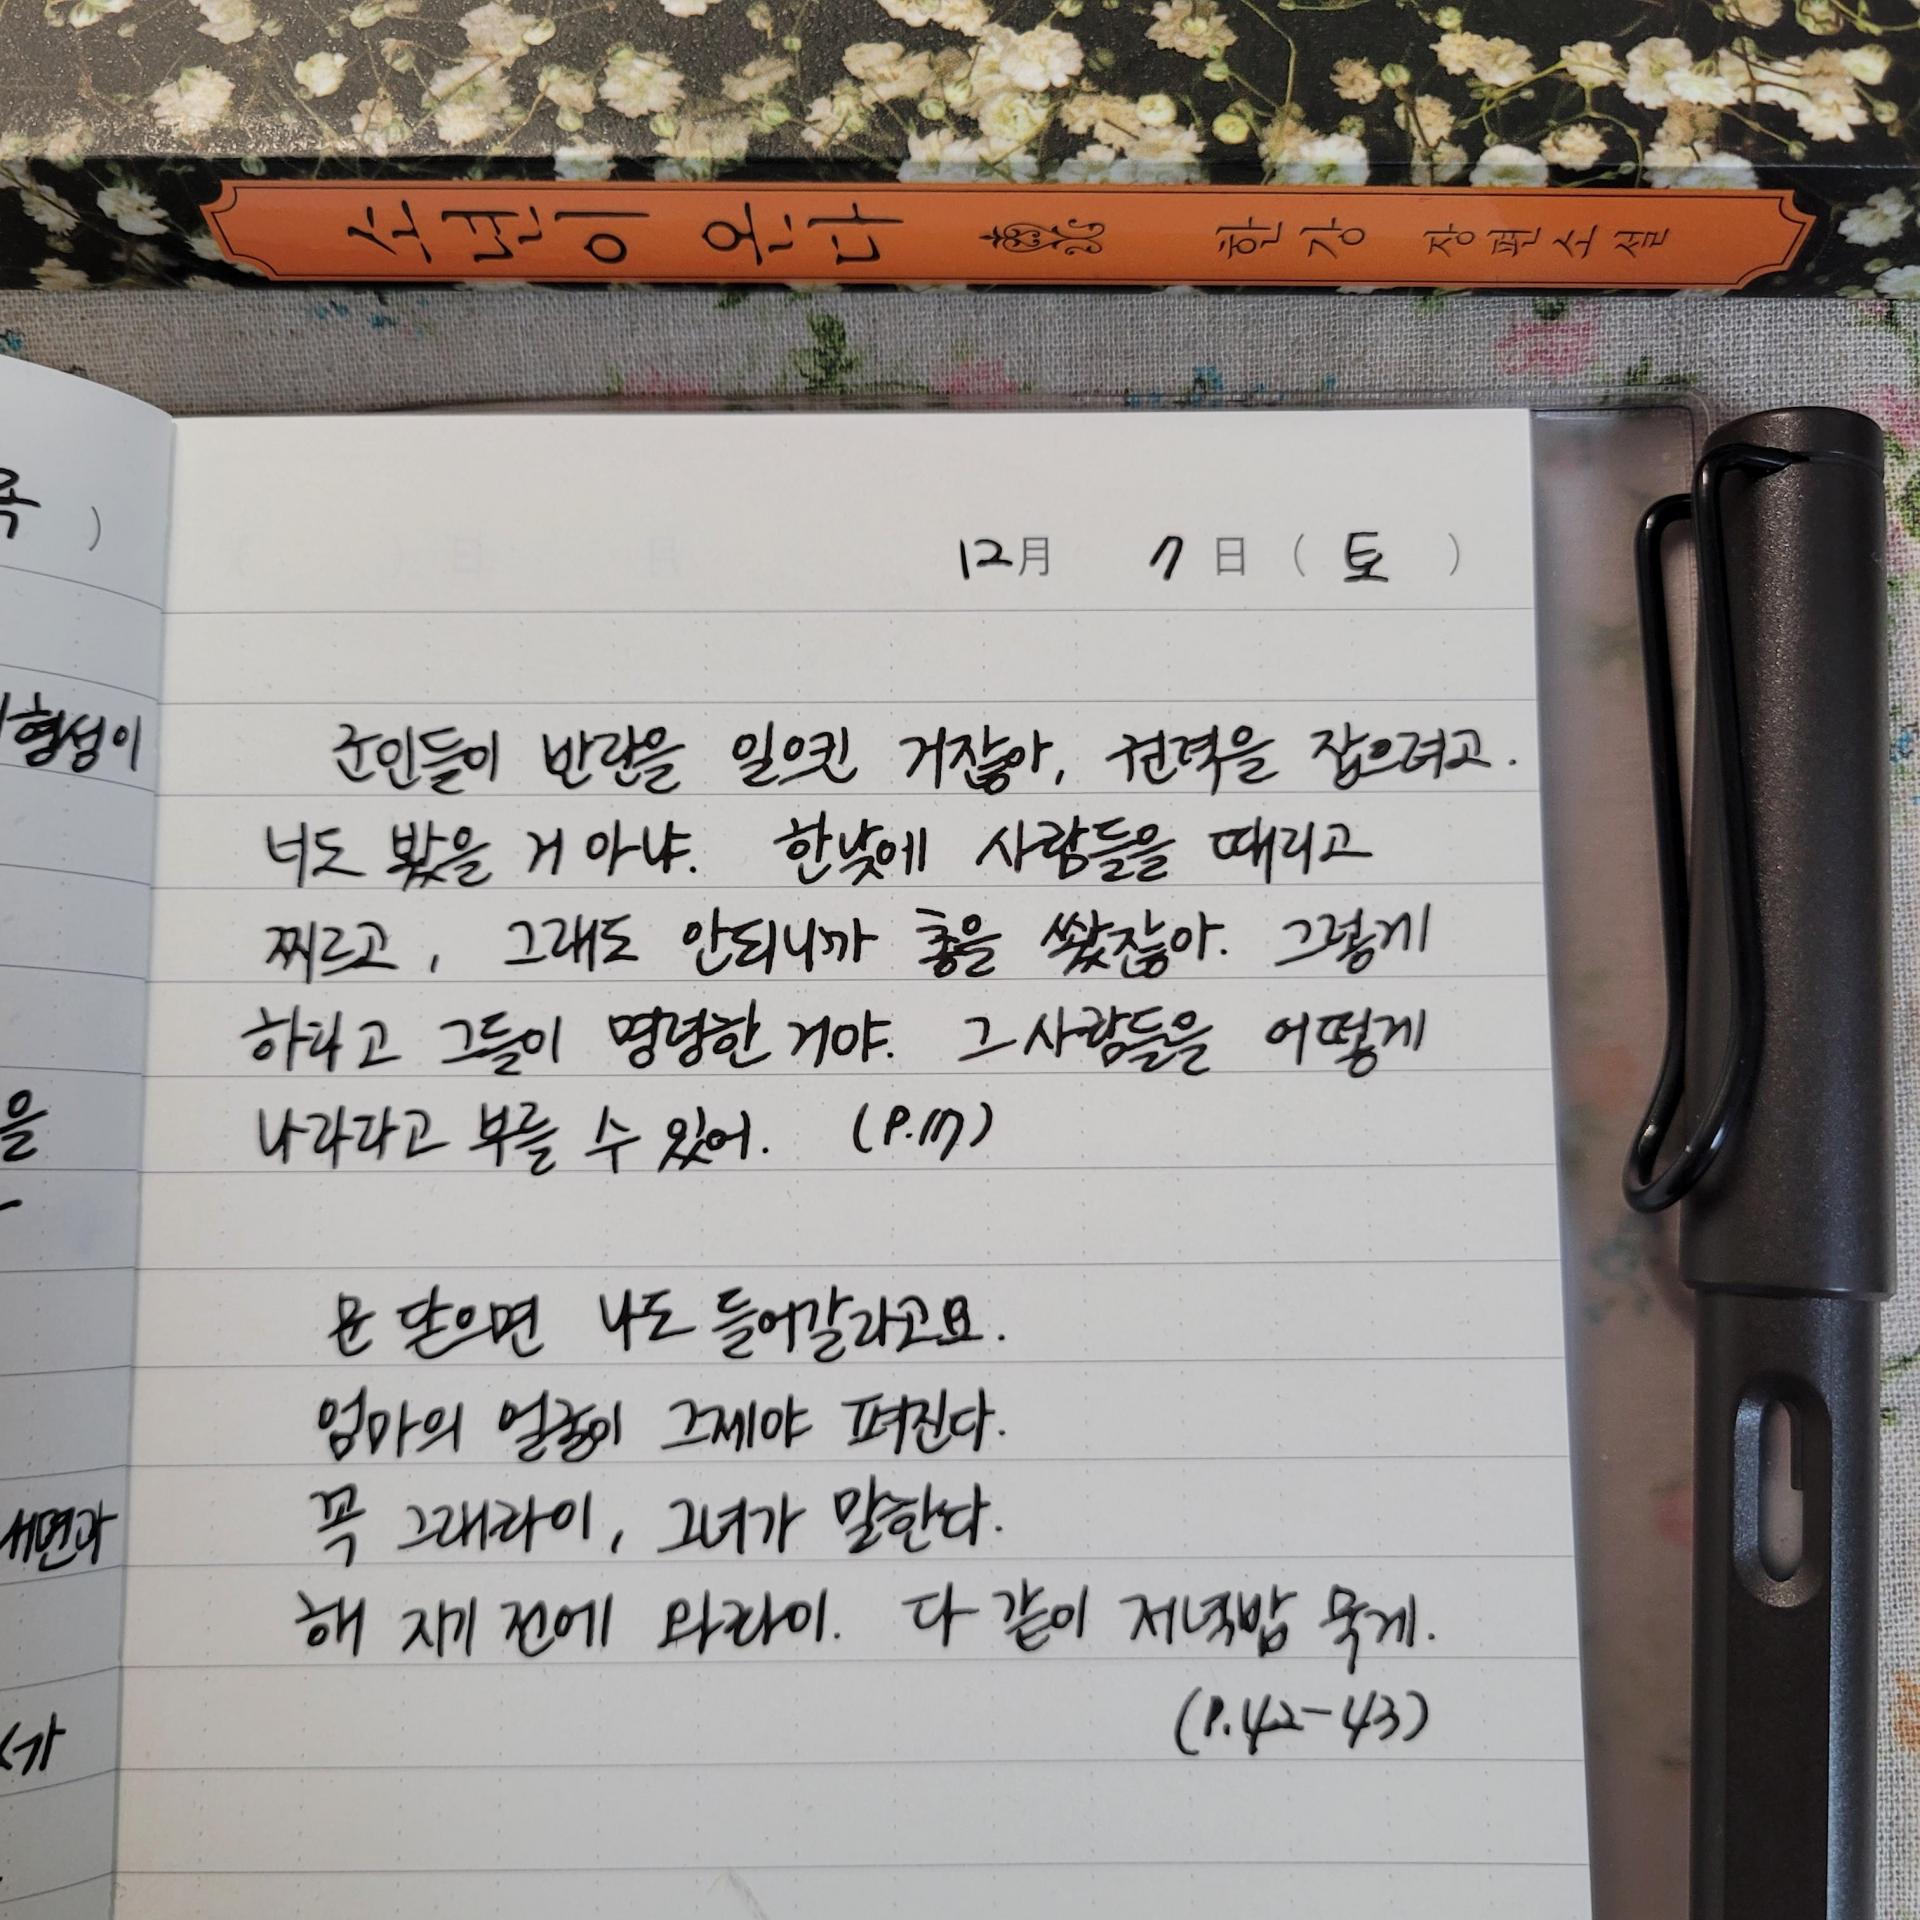 소년이 온다 한강 장편소설
12月 7日 (토)
군인들이 반란을 일으킨 거잖아, 권력을 잡으려고.
너도 봤을 거 아냐. 한낮에 사람들을 때리고
찌르고, 그래도 안되니까 총을 쐈잖아. 그렇게
하라고 그들이 명령한 거야. 그 사람들을 어떻게
나라라고 부를 수 있어. (P.17)
문 닫으면 나도 들어갈라고요.
엄마의 얼굴이 그제야 펴진다.
꼭 그래라이, 그녀가 말한다.
해 지기 전에 와라이. 다 같이 저녁밥 묵게.
(P.42-43)
)
형성이
을
세면과
가